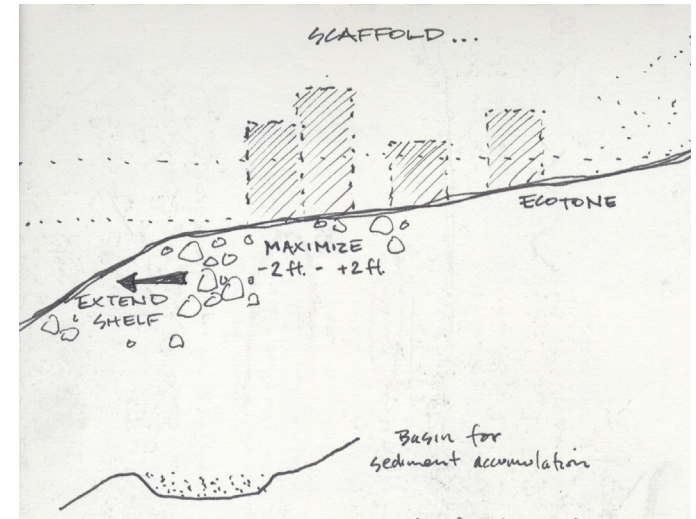 SCAFFOLD...
ECOTONE
MAXIMIZE
-2 ft. - +2 ft.
EXTEND
SHELF
Basin for
sediment accumulation